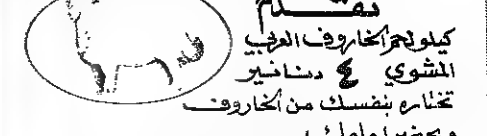 تقدم
كيلو لحم الخاروف العربي
المشوي ٤ دنانير
تختاره بنفسك من الخاروف
ويحضر أمامك